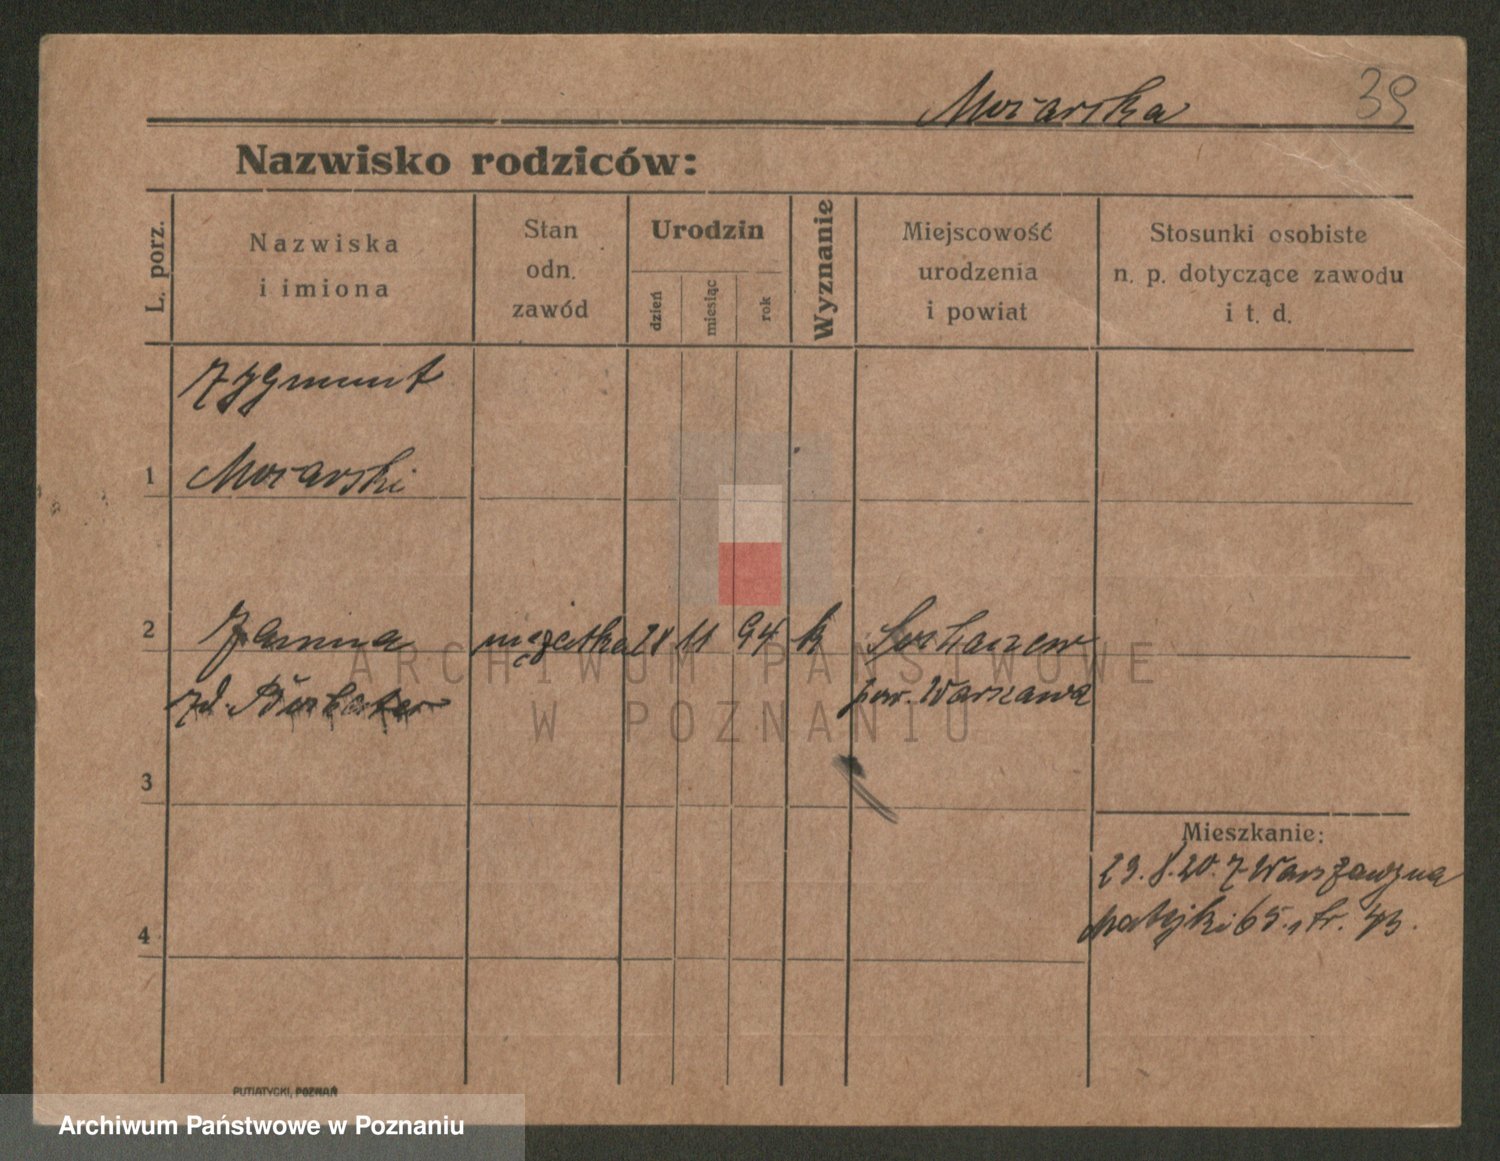 39
Morarska
Nazwisko rodziców:
L. porz.
Nazwiska
i imiona
Stan
odn.
zawód
Urodzin
dzień
miesiąc
rok
Wyznanie
Miejscowość
urodzenia
i powiat
Stosunki osobiste
n. p. dotyczące zawodu
i t. d.
Zygmunt
1 Morarski
2 mężatka 28 11 94 k Sochaczew
zd. pow. Warszawa
3
Mieszkanie:
29.8.20. z Warszawy na
Matejki 65. tr.
4
PUTIATYCKI, POZNAŃ
ARCHIWUM PAŃSTWOWE
W POZNANIU
Archiwum Państwowe w Poznaniu